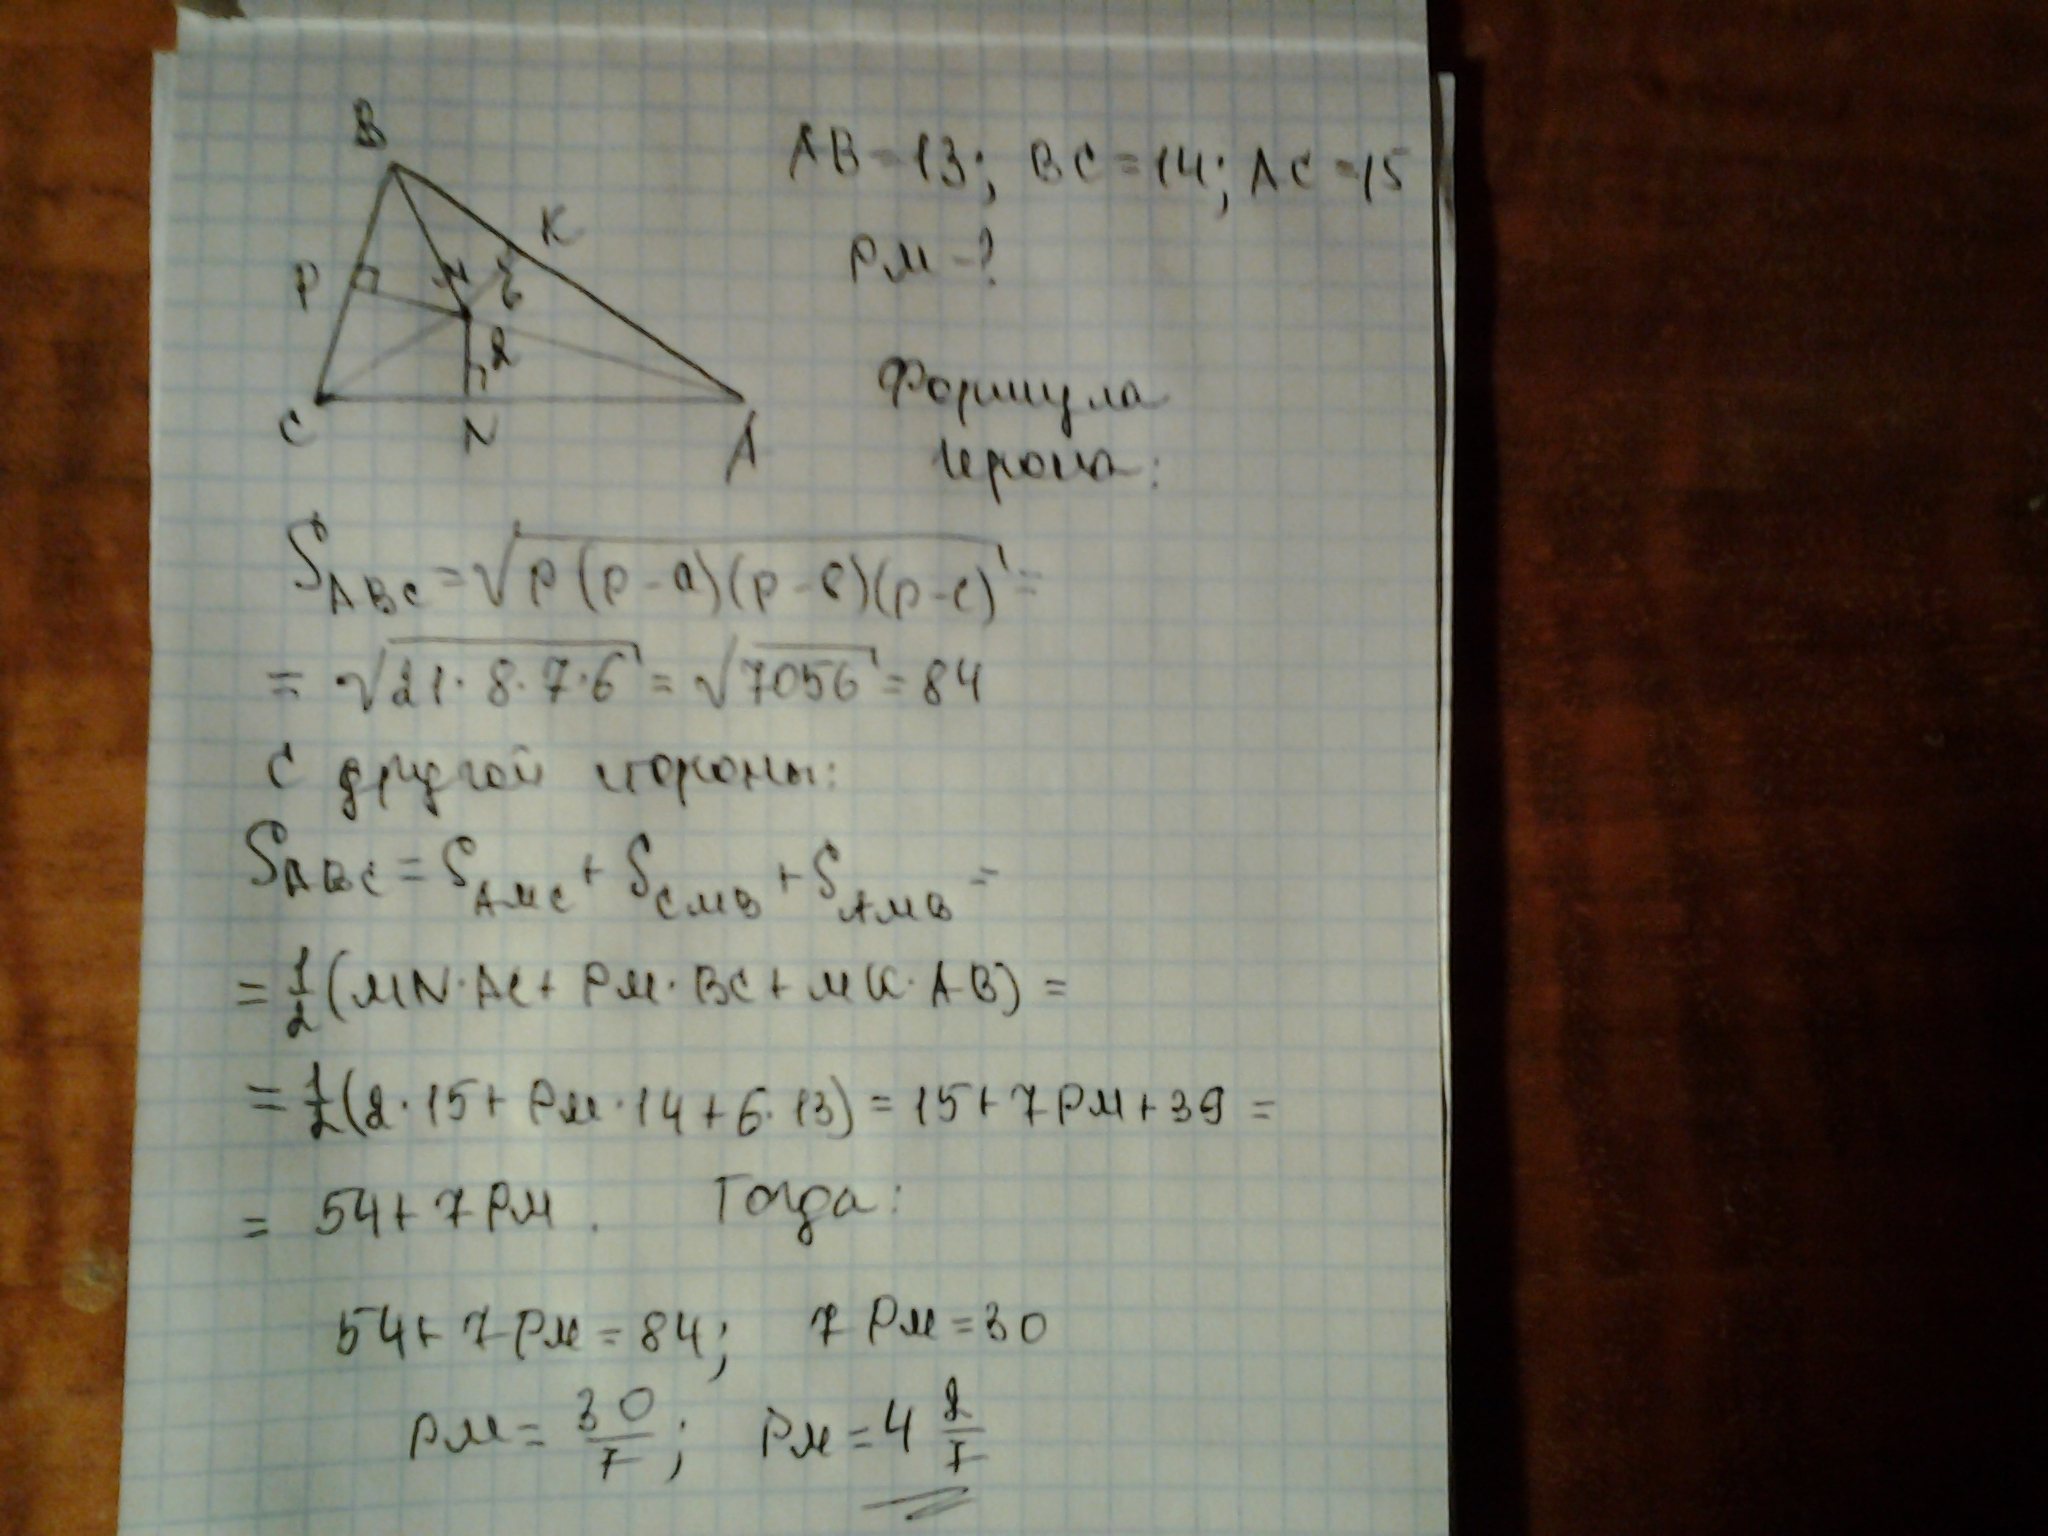 B
AB=13; BC=14; AC=15
K
PM-?
P
M
6
2
C
N
A
Формула
Герона:
S_ABC = √p(p-a)(p-b)(p-c) =
= √21·8·7·6 = √7056 = 84
С другой стороны:
S_ABC = S_AMC + S_CMB + S_AMB =
= 1/2 (MN·AC + PM·BC + MK·AB) =
= 1/2 (2·15 + PM·14 + 6·13) = 15 + 7PM + 39 =
= 54 + 7PM. Тогда:
54 + 7PM = 84; 7PM = 30
PM = 30/7; PM = 4 2/7